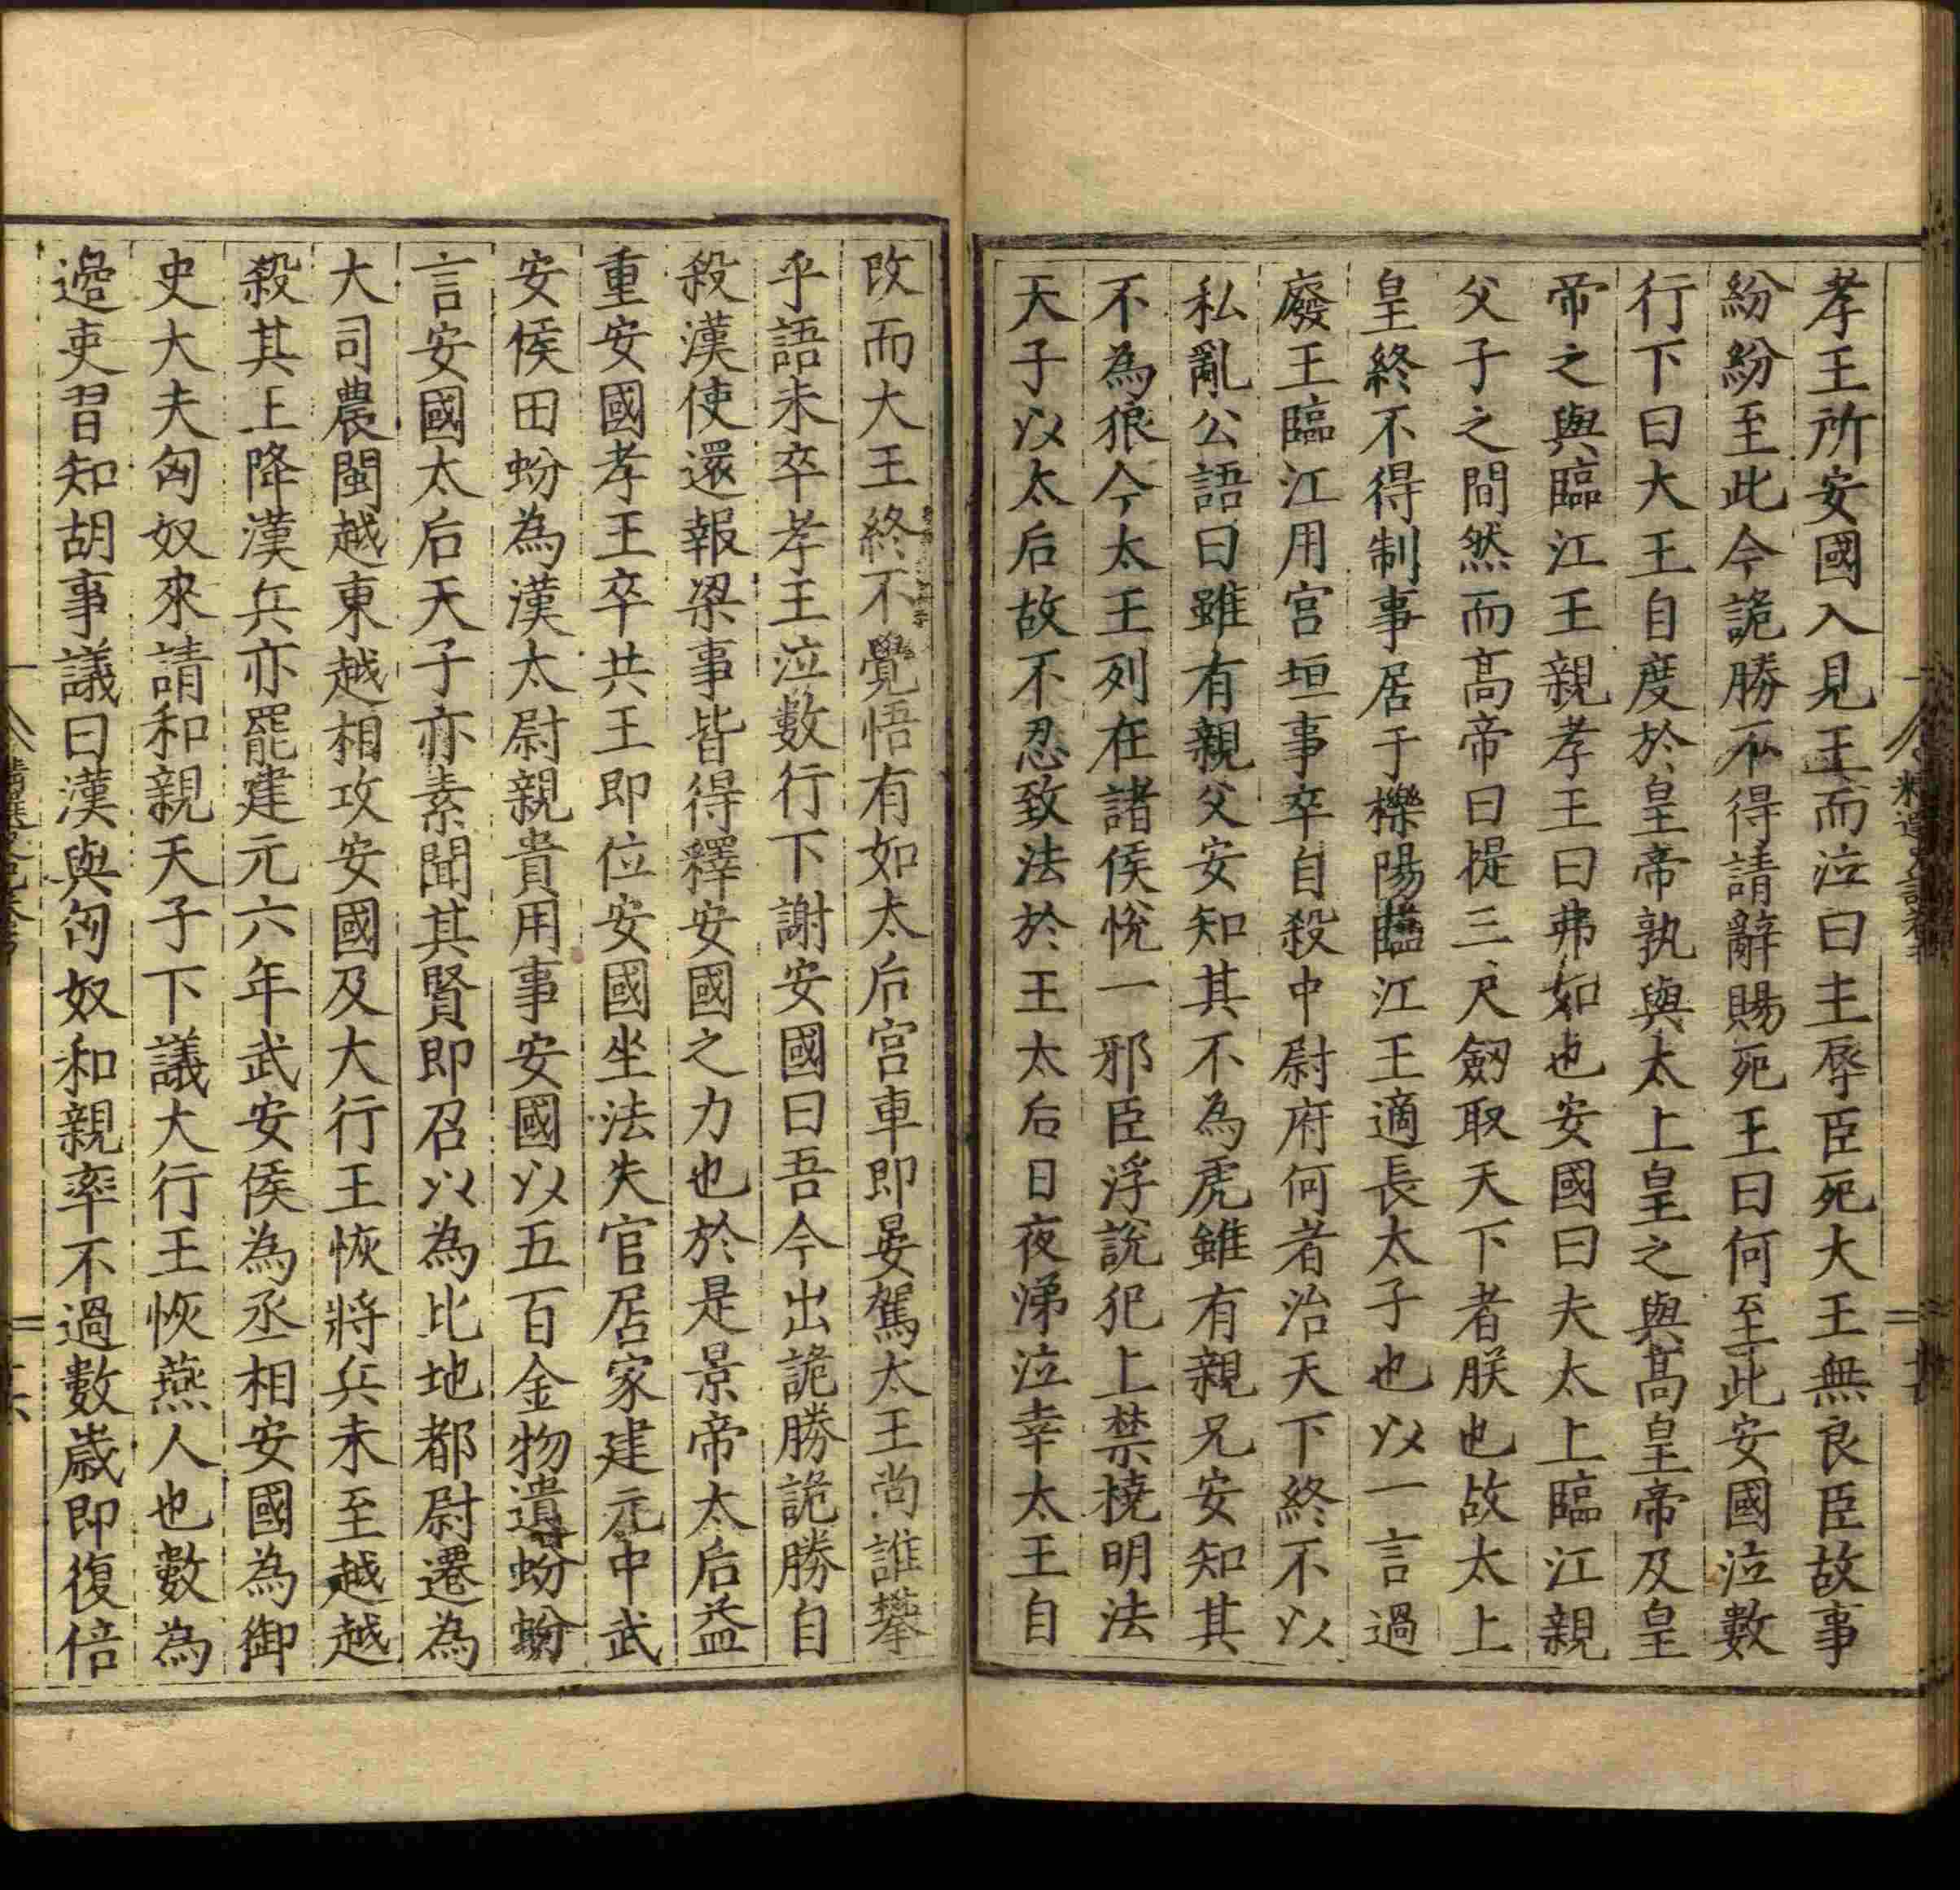 孝王所安國入見王而泣曰主辱臣死大王無良臣故事
紛紛至此今詭勝不得請辭賜死王曰何至此安國泣數
行下曰大王自度於皇帝孰與太上皇之與高皇帝及皇
帝之與臨江王親孝王曰弗如也安國曰夫太上臨江親
父子之間然而高帝曰提三尺劒取天下者朕也故太上
皇終不得制事居于櫟陽臨江王適長太子也以一言過
廢王臨江用宮垣事卒自殺中尉府何者治天下終不以
私亂公語曰雖有親父安知其不為虎雖有親兄安知其
不為狼今太王列在諸侯悅一邪臣浮說犯上禁橈明法
天子以太后故不忍致法於王太后日夜涕泣幸太王自
改而大王終不覺悟有如太后宮車即晏駕太王尚誰攀
乎語未卒孝王泣數行下謝安國曰吾今出詭勝詭勝自
殺漢使還報梁事皆得釋安國之力也於是景帝太后益
重安國孝王卒共王即位安國坐法失官居家建元中武
安侯田蚡為漢太尉親貴用事安國以五百金物遺蚡蚡
言安國太后天子亦素聞其賢即召以為比地都尉遷為
大司農閩越東越相攻安國及大行王恢將兵未至越越
殺其上降漢兵亦罷建元六年武安侯為丞相安國為御
史大夫匈奴來請和親天子下議大行王恢燕人也數為
邊吏習知胡事議曰漢與匈奴和親率不過數歲即復倍